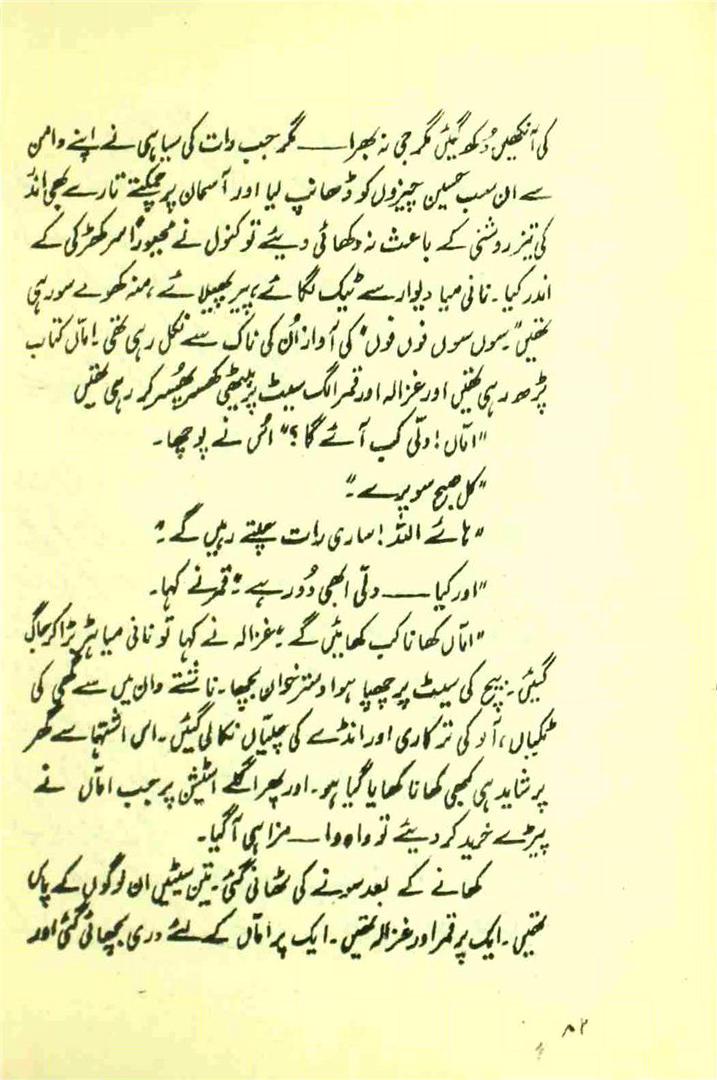 کی آنکھیں دُکھ گیئں مگر جی نہ بھرا —— مگر جب رات کی سیاہی نے اپنے دامن
سے ان سب حسین چیزوں کو ڈھانپ لیا اور آسمان پر چمکتے تارے بھی انڈ
کی تیز روشنی کے باعث نہ دکھائی دیئے تو کنول نے مجبوراً سر کھڑکی کے
اندر کیا۔ نانی میا دیوار سے ٹیک لگائے، پیر پھیلائے، منہ کھولے سو رہی
تھیں "سوں سوں فوں فوں" کی آواز اُن کی ناک سے نکل رہی تھی! امّاں کتاب
پڑھ رہی تھیں اور غزالہ اور قمر الگ سیٹ پر بیٹھی کھُسر پھُسر کر رہی تھیں
"امّاں! دلّی کب آئے گا؟" اس نے پوچھا۔
"کل صبح سویرے۔"
"ہائے اللہ! ساری رات چلتے رہیں گے۔"
"اور کیا —— دلّی ابھی دُور ہے۔" قمر نے کہا۔
"امّاں کھانا کب کھائیں گے۔" غزالہ نے کہا تو نانی میا ہڑبڑا کر جاگ
گیئں۔ بیچ کی سیٹ پر چھپا ہوا دسترخوان بچھا۔ ناشتے دان میں سے گھی کی
ٹکیاں، آلو کی ترکاری اور انڈے کی چلیّاں نکالی گیئں۔ اس اشتہا سے گھر
پر شاید ہی کبھی کھانا کھایا گیا ہو۔ اور پھر اگلے اسٹیشن پر جب امّاں نے
پیڑے خرید کر دیئے تو واہ وا — مزا ہی آگیا۔
کھانے کے بعد سونے کی ٹھانی گئی۔ تین سیٹیں ان لوگوں کے پاس
تھیں۔ ایک پر قمر اور غزالہ تھیں۔ ایک پر امّاں کے لئے دری بچھائی گئی اور
۸۲